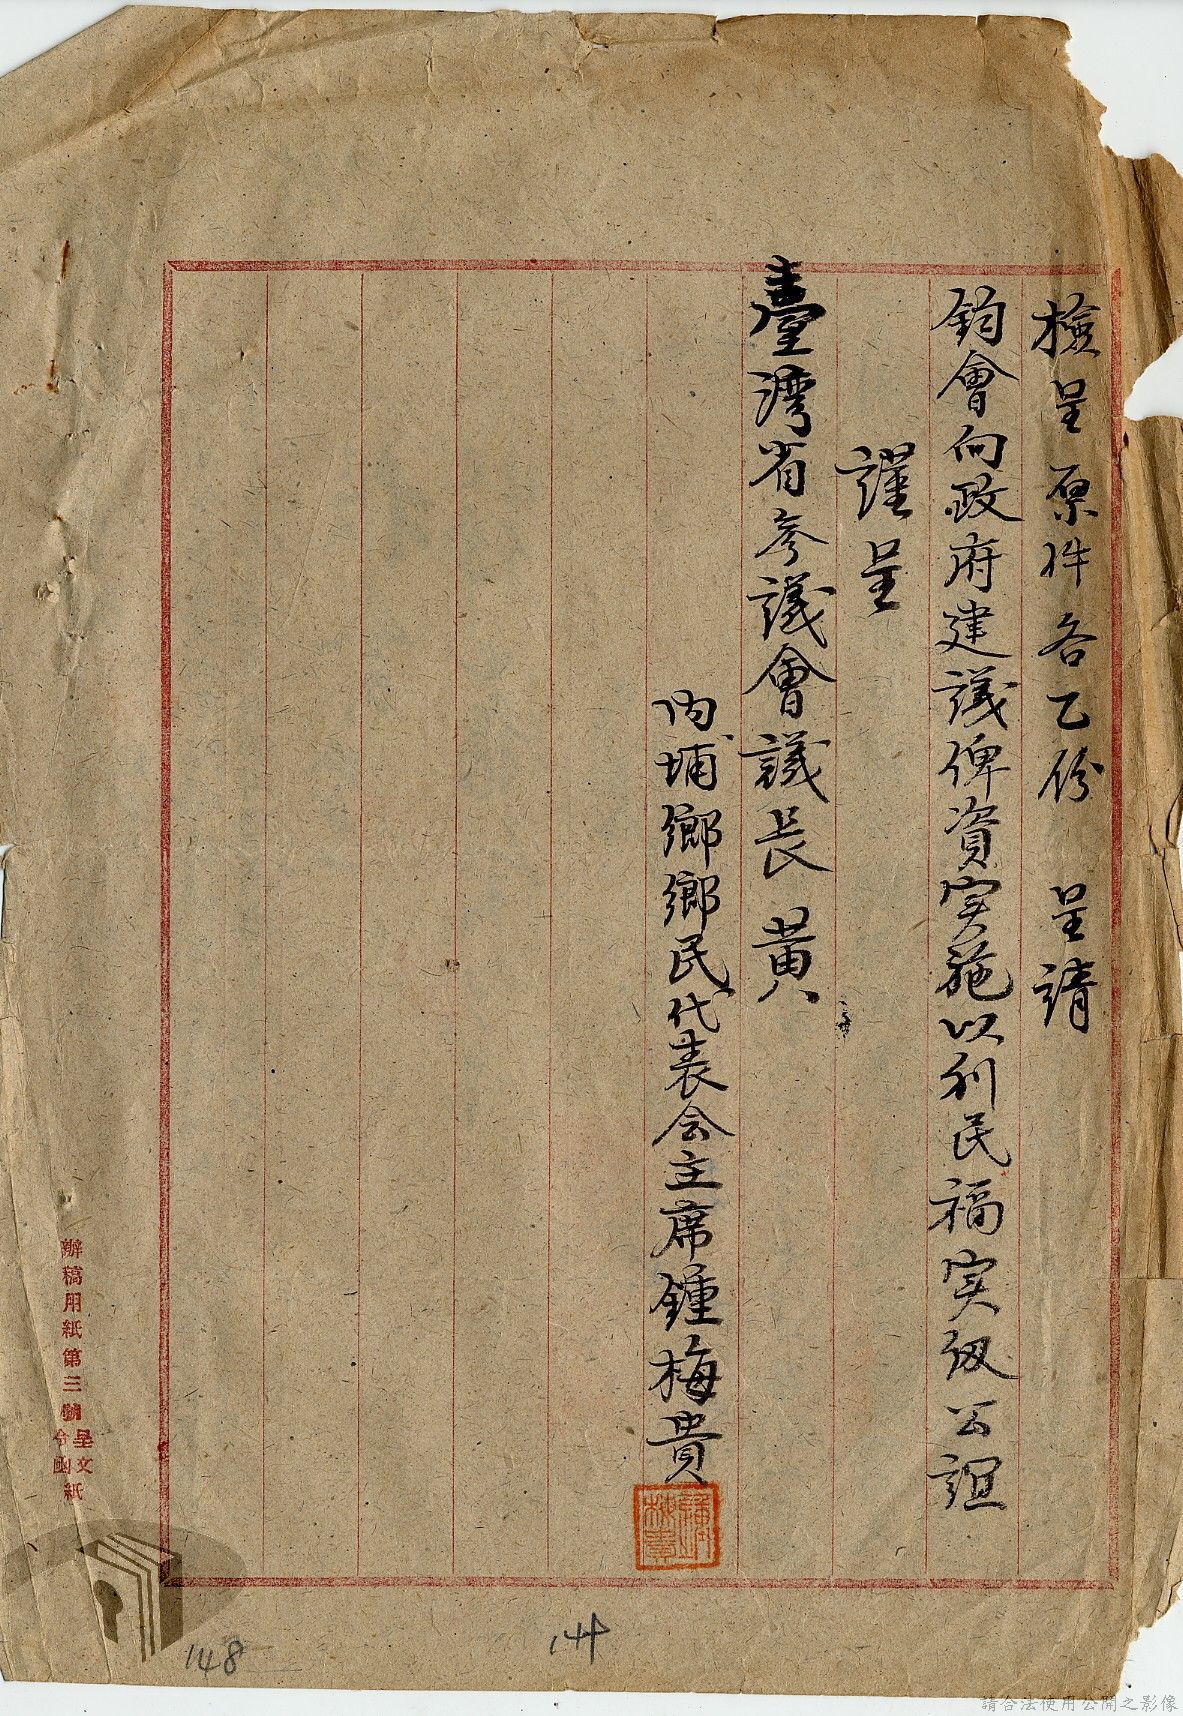 檢呈原件各乙份　呈請
鈞會向政府建議俾資实施以利民福实級公誼
謹呈
臺灣省參議會議長　黃
內埔鄉鄉民代表会主席鍾梅貴
辦稿用紙第三號呈文紙
令函
148
請合法使用公開之影像